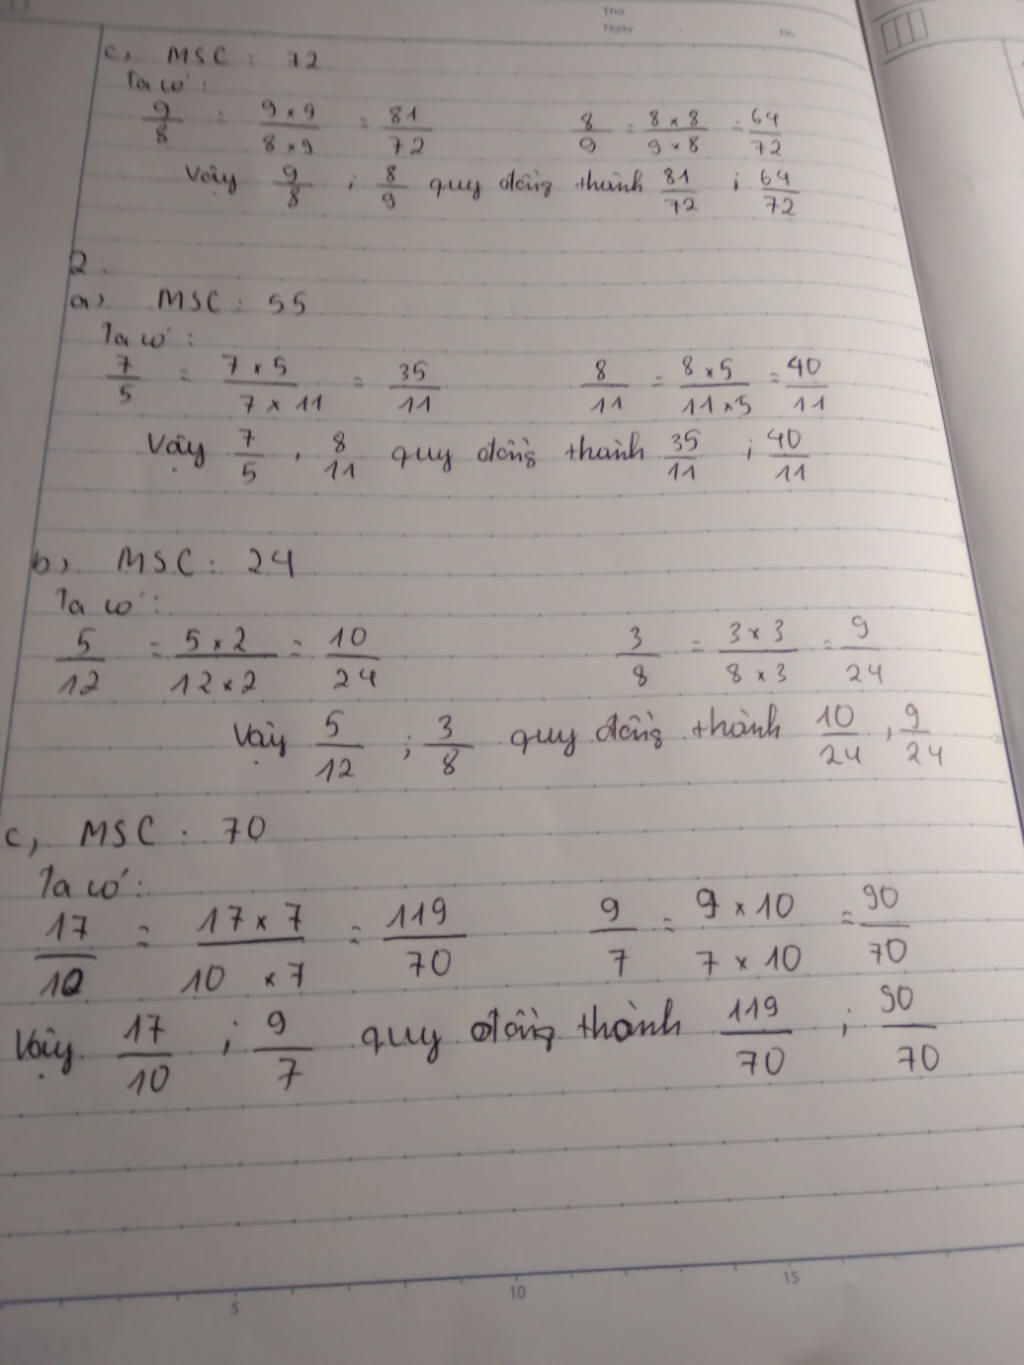 Thứ
Ngày No.
c, MSC : 72
Ta có :
9/8 = 9 x 9 / 8 x 9 = 81/72 8/9 = 8 x 8 / 9 x 8 = 64/72
Vậy 9/8 ; 8/9 quy đồng thành 81/72 ; 64/72
2.
a) MSC : 55
Ta có :
7/5 = 7 x 5 / 7 x 11 = 35/11 8/11 = 8 x 5 / 11 x 5 = 40/11
Vậy 7/5 , 8/11 quy đồng thành 35/11 ; 40/11
b) MSC : 24
Ta có :
5/12 = 5 x 2 / 12 x 2 = 10/24 3/8 = 3 x 3 / 8 x 3 = 9/24
Vậy 5/12 ; 3/8 quy đồng thành 10/24 , 9/24
c, MSC : 70
Ta có :
17/10 = 17 x 7 / 10 x 7 = 119/70 9/7 = 9 x 10 / 7 x 10 = 90/70
Vậy 17/10 ; 9/7 quy đồng thành 119/70 ; 90/70
5 10 15